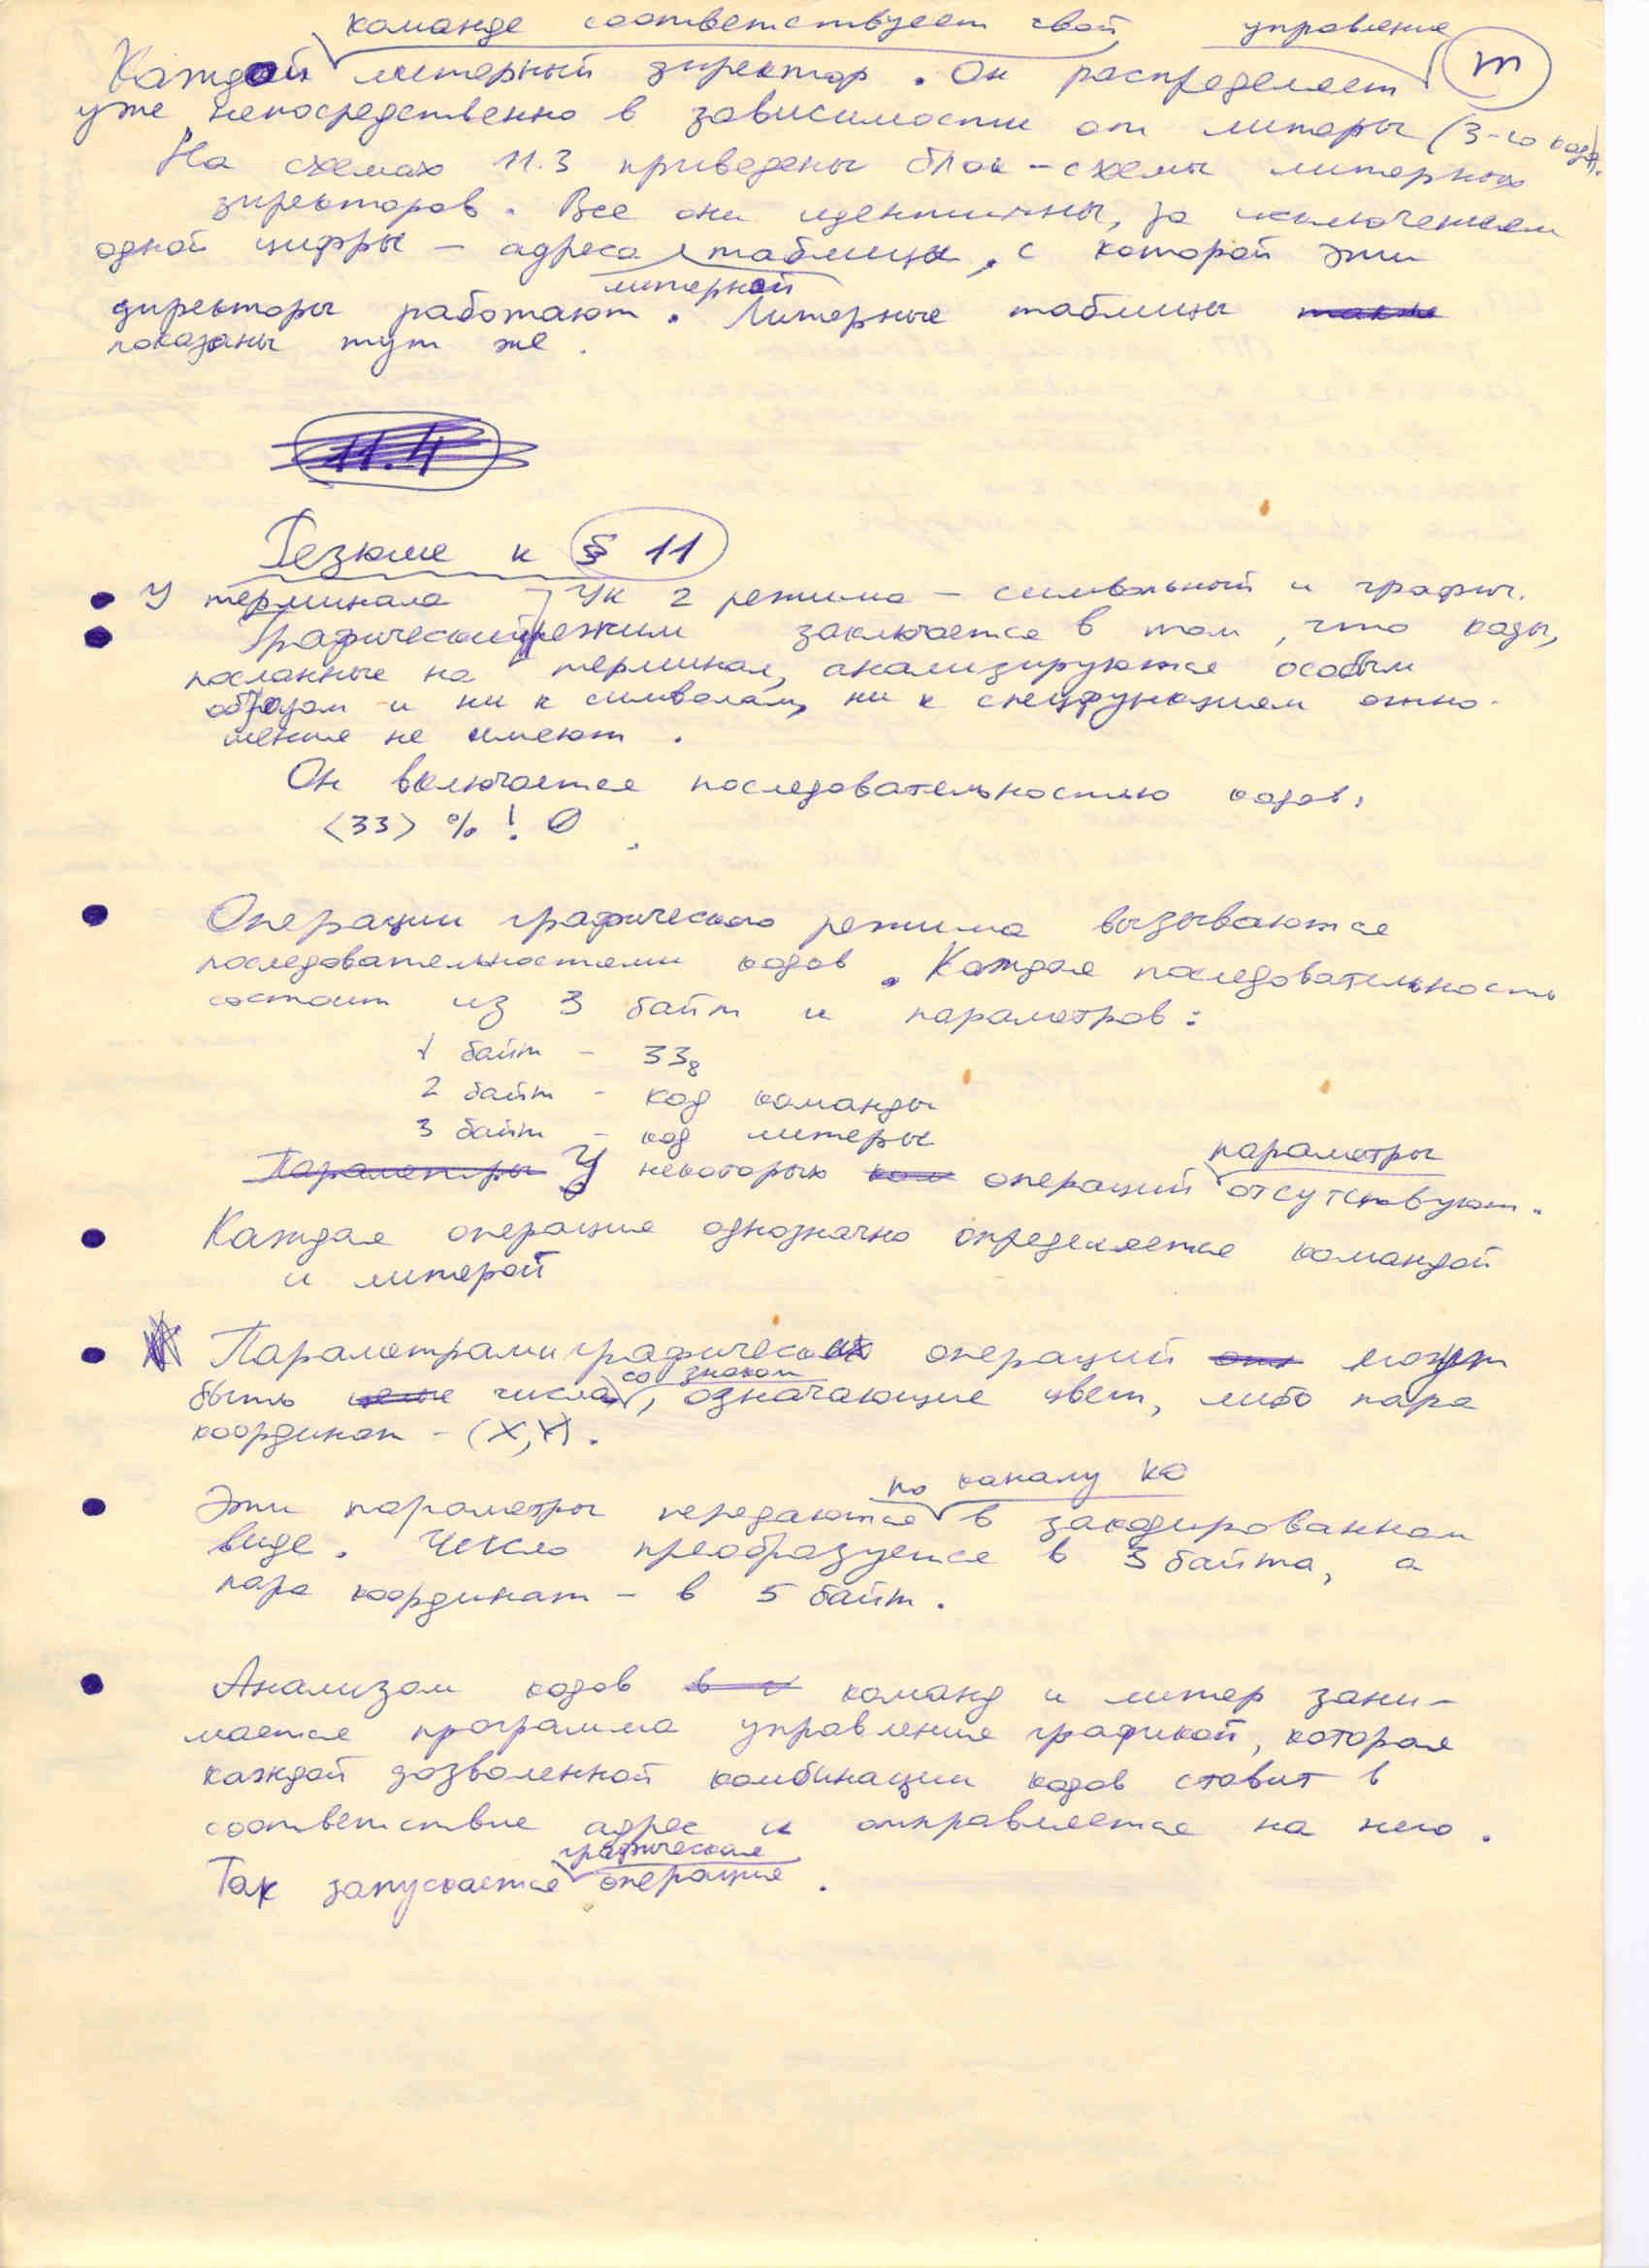 команде соответствует свой управление
Каждой литерный директор. Он распределяет m
уже непосредственно в зависимости от литеры (3-го кода).
На схемах 11.3 приведены блок-схемы литерных
директоров. Все они идентичны, за исключением
одной цифры - адреса таблицы, с которой эти
литерной
директоры работают. Литерные таблицы также
показаны тут же.
11.4
Резюме к § 11
• У терминала 2 режима - символьный и графич.
• Графический режим заключается в том, что коды,
посланные на терминал, анализируются особым
образом и ни к символам, ни к спецфункциям отно-
шения не имеют.
Он включается последовательностью кодов:
<33> % ! 0
• Операции графического режима вызываются
последовательностями кодов. Каждая последовательность
состоит из 3 байт и параметров:
1 байт - 33₈
2 байт - код команды
3 байт - код литеры
параметры
Параметры У некоторых ком операций отсутствуют.
• Каждая операция однозначно определяется командой
и литерой
• Параметрами графических операций могут
со знаком
быть целые числа, означающие цвет, либо пара
координат - (X,Y).
по каналу КО
• Эти параметры передаются в закодированном
виде. Число преобразуется в 3 байта, а
пара координат - в 5 байт.
• Анализом кодов команд и литер зани-
мается программа управления графикой, которая
каждой дозволенной комбинации кодов ставит в
соответствие адрес и отправляется на него.
графическая
Так запускается операция.